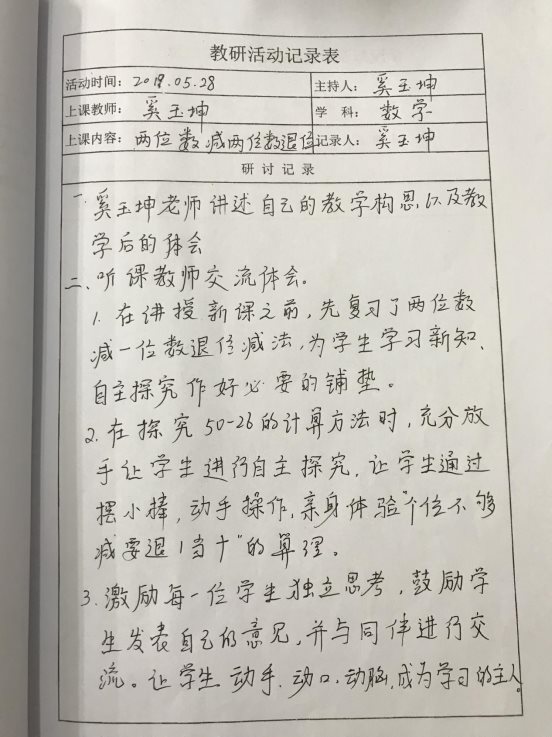 教研活动记录表
活动时间：2018.05.28 主持人：奚玉坤
上课教师：奚玉坤 学 科：数学
上课内容：两位数减两位数退位 记录人：奚玉坤
研 讨 记 录
一、奚玉坤老师讲述自己的教学构思,以及教
学后的体会
二、听课教师交流体会。
1. 在讲授新课之前，先复习了两位数
减一位数退位减法，为学生学习新知、
自主探究作好必要的铺垫。
2. 在探究50-26的计算方法时，充分放
手让学生进行自主探究，让学生通过
摆小棒，动手操作，亲身体验“个位不够
减要退1当十”的算理。
3. 激励每一位学生独立思考，鼓励学
生发表自己的意见，并与同伴进行交
流。让学生动手、动口、动脑，成为学习的主人。